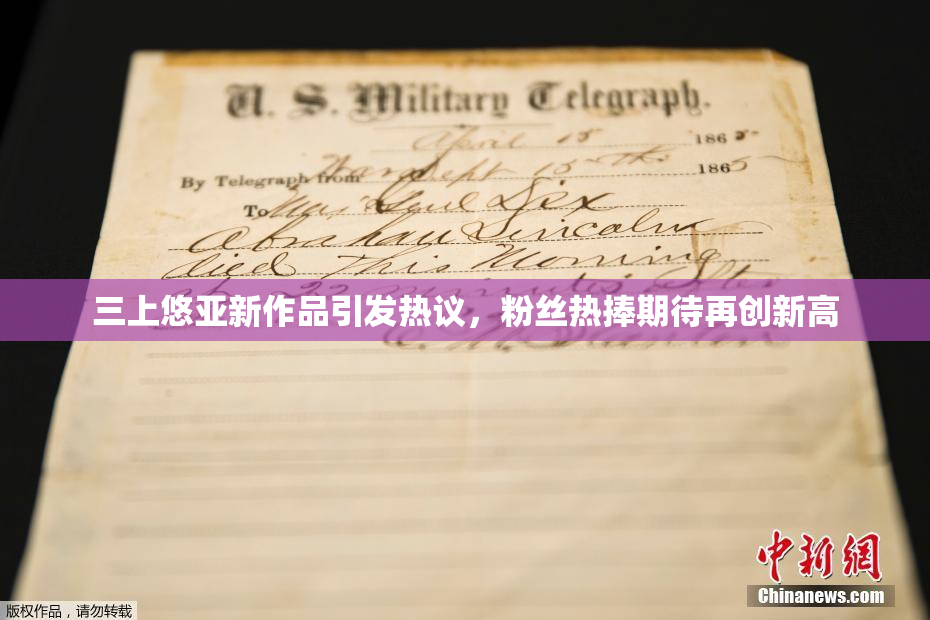 U. S. Military Telegraph.
April 15 1865
By Telegraph from War Dept 15th 1865
To Maj Genl Dix
Abraham Lincoln
died This Morning
at 22 minutes after
三上悠亚新作品引发热议，粉丝热捧期待再创新高
E. M. Stanton
中新网
Chinanews.com
版权作品，请勿转载